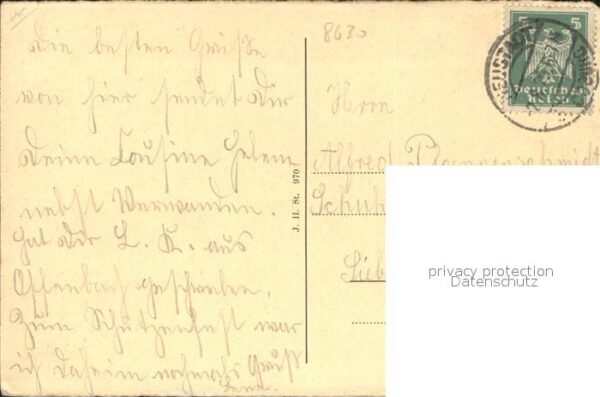 8630
Die besten Grüße
von hier sendet dir
Deine Cousine Helene
nebst Verwandten.
Hat dir L. K. aus
Offenbach geschrieben.
Zum Schützenfest war
ich daheim nochmals Gruß
Lene.
J. H. St. 970
5 5
Deutsches
Reich
NEUSTADT
Herrn
Alfred
Schuh
Lieb
privacy protection
Datenschutz